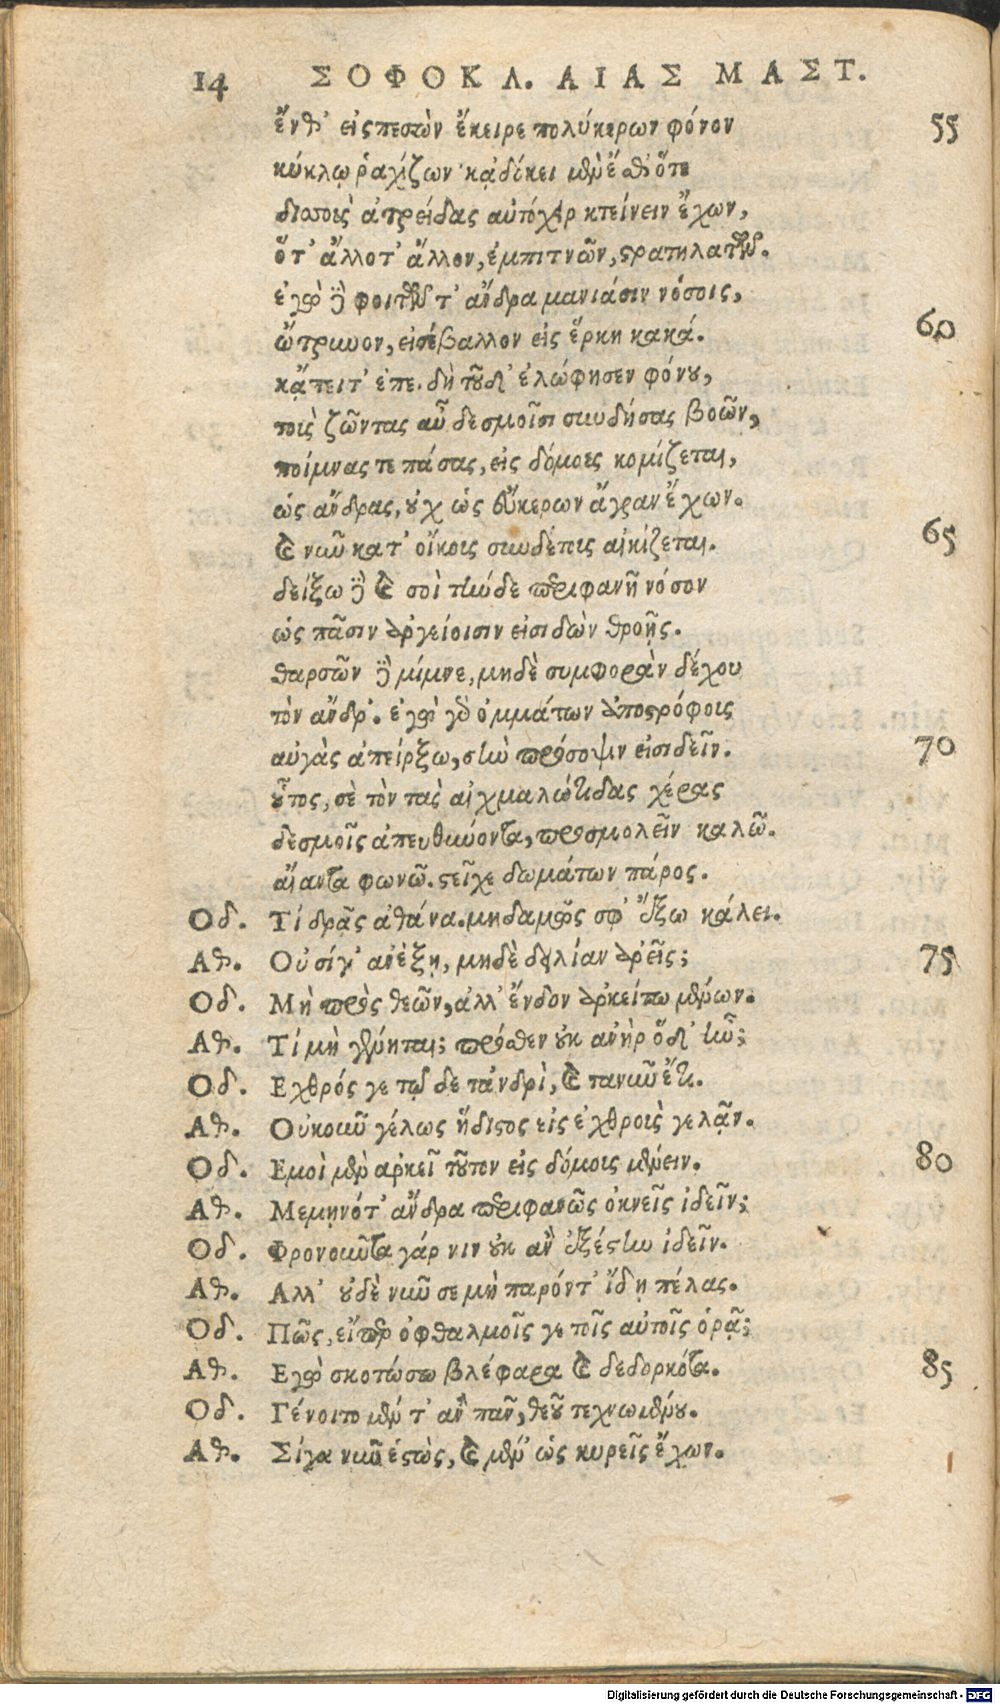 14 ΣΟΦΟΚΛ. ΑΙΑΣ ΜΑΣΤ.
ἔνθ' εἰςπεσὼν ἔκειρε πολύκερων φόνον 55
κύκλῳ ῥαχίζων· κᾀδόκει μὲν ἔσθ' ὅτε
δισσοὺς ἀτρείδας αὐτόχειρ κτείνειν ἔχων,
ὅτ' ἄλλοτ' ἄλλον, ἐμπιτνῶν, στρατηλατῶν.
ἐγὼ δὲ φοιτῶντ' ἄνδρα μανιάσιν νόσοις,
ὤτρυνον, εἰσέβαλλον εἰς ἕρκη κακά. 60
κᾄπειτ' ἐπειδὴ τοῦδ' ἐλώφησεν φόνου,
τοὺς ζῶντας αὖ δεσμοῖσι συνδήσας βοῶν,
ποίμνας τε πάσας, εἰς δόμους κομίζεται,
ὡς ἄνδρας, οὐχ ὡς εὔκερων ἄγραν ἔχων.
καὶ νῦν κατ' οἴκους συνδέτους αἰκίζεται. 65
δείξω δὲ καὶ σοὶ τήνδε περιφανῆ νόσον
ὡς πᾶσιν ἀργείοισιν εἰσιδὼν θροῇς.
θαρσῶν δὲ μίμνε, μηδὲ συμφορὰν δέχου
τὸν ἄνδρ'. ἐγὼ γὰρ ὀμμάτων ἀποστρόφους
αὐγὰς ἀπείρξω, σὴν πρόσοψιν εἰσιδεῖν. 70
οὗτος, σὲ τὸν τὰς αἰχμαλώτιδας χέρας
δεσμοῖς ἀπευθύνοντα, προσμολεῖν καλῶ.
αἴαντα φωνῶ. στεῖχε δωμάτων πάρος.
Οδ. Τί δρᾷς ἀθάνα. μηδαμῶς σφ' ἔξω κάλει.
Αθ. Οὐ σίγ' ἀνέξῃ, μηδὲ δειλίαν ἀρεῖς; 75
Οδ. Μὴ πρὸς θεῶν, ἀλλ' ἔνδον ἀρκείτω μένων.
Αθ. Τί μὴ γένηται; πρόσθεν οὐκ ἀνὴρ ὅδ' ἦν;
Οδ. Εχθρός γε τῷδε τἀνδρὶ, καὶ τανῦν ἔτι.
Αθ. Οὐκοῦν γέλως ἥδιστος εἰς ἐχθροὺς γελᾷν.
Οδ. Εμοὶ μὲν ἀρκεῖ τοῦτον εἰς δόμους μένειν. 80
Αθ. Μεμηνότ' ἄνδρα περιφανῶς ὀκνεῖς ἰδεῖν;
Οδ. Φρονοῦντα γάρ νιν οὐκ ἂν ἐξέστην ἰδεῖν.
Αθ. Αλλ' οὐδὲ νῦν σε μὴ παρόντ' ἴδῃ πέλας.
Οδ. Πῶς, εἴπερ ὀφθαλμοῖς γε τοῖς αὐτοῖς ὁρᾷ;
Αθ. Εγὼ σκοτώσω βλέφαρα καὶ δεδορκότα. 85
Οδ. Γένοιτο μέν τ' ἂν πᾶν, θεοῦ τεχνωμένου.
Αθ. Σίγα νῦν ἑστὼς, καὶ μέν' ὡς κυρεῖς ἔχων.
Digitalisierung gefördert durch die Deutsche Forschungsgemeinschaft - DFG